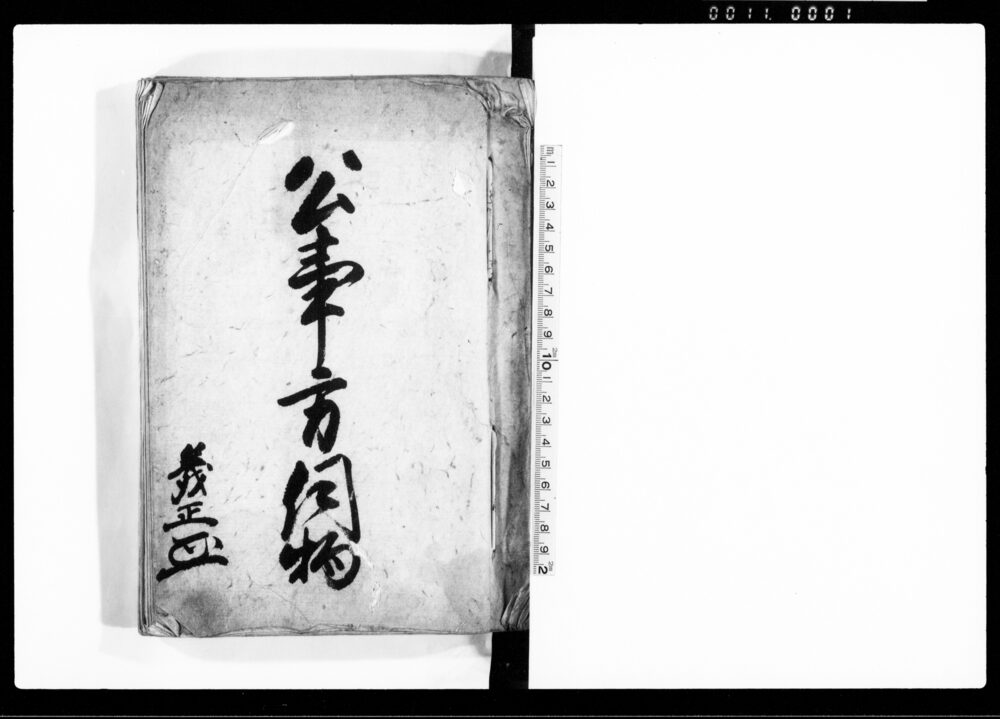 0011. 0001
公事方伺物
義正
m 1 2 3 4 5 6 7 8 9 10 1 2 3 4 5 6 7 8 9 2